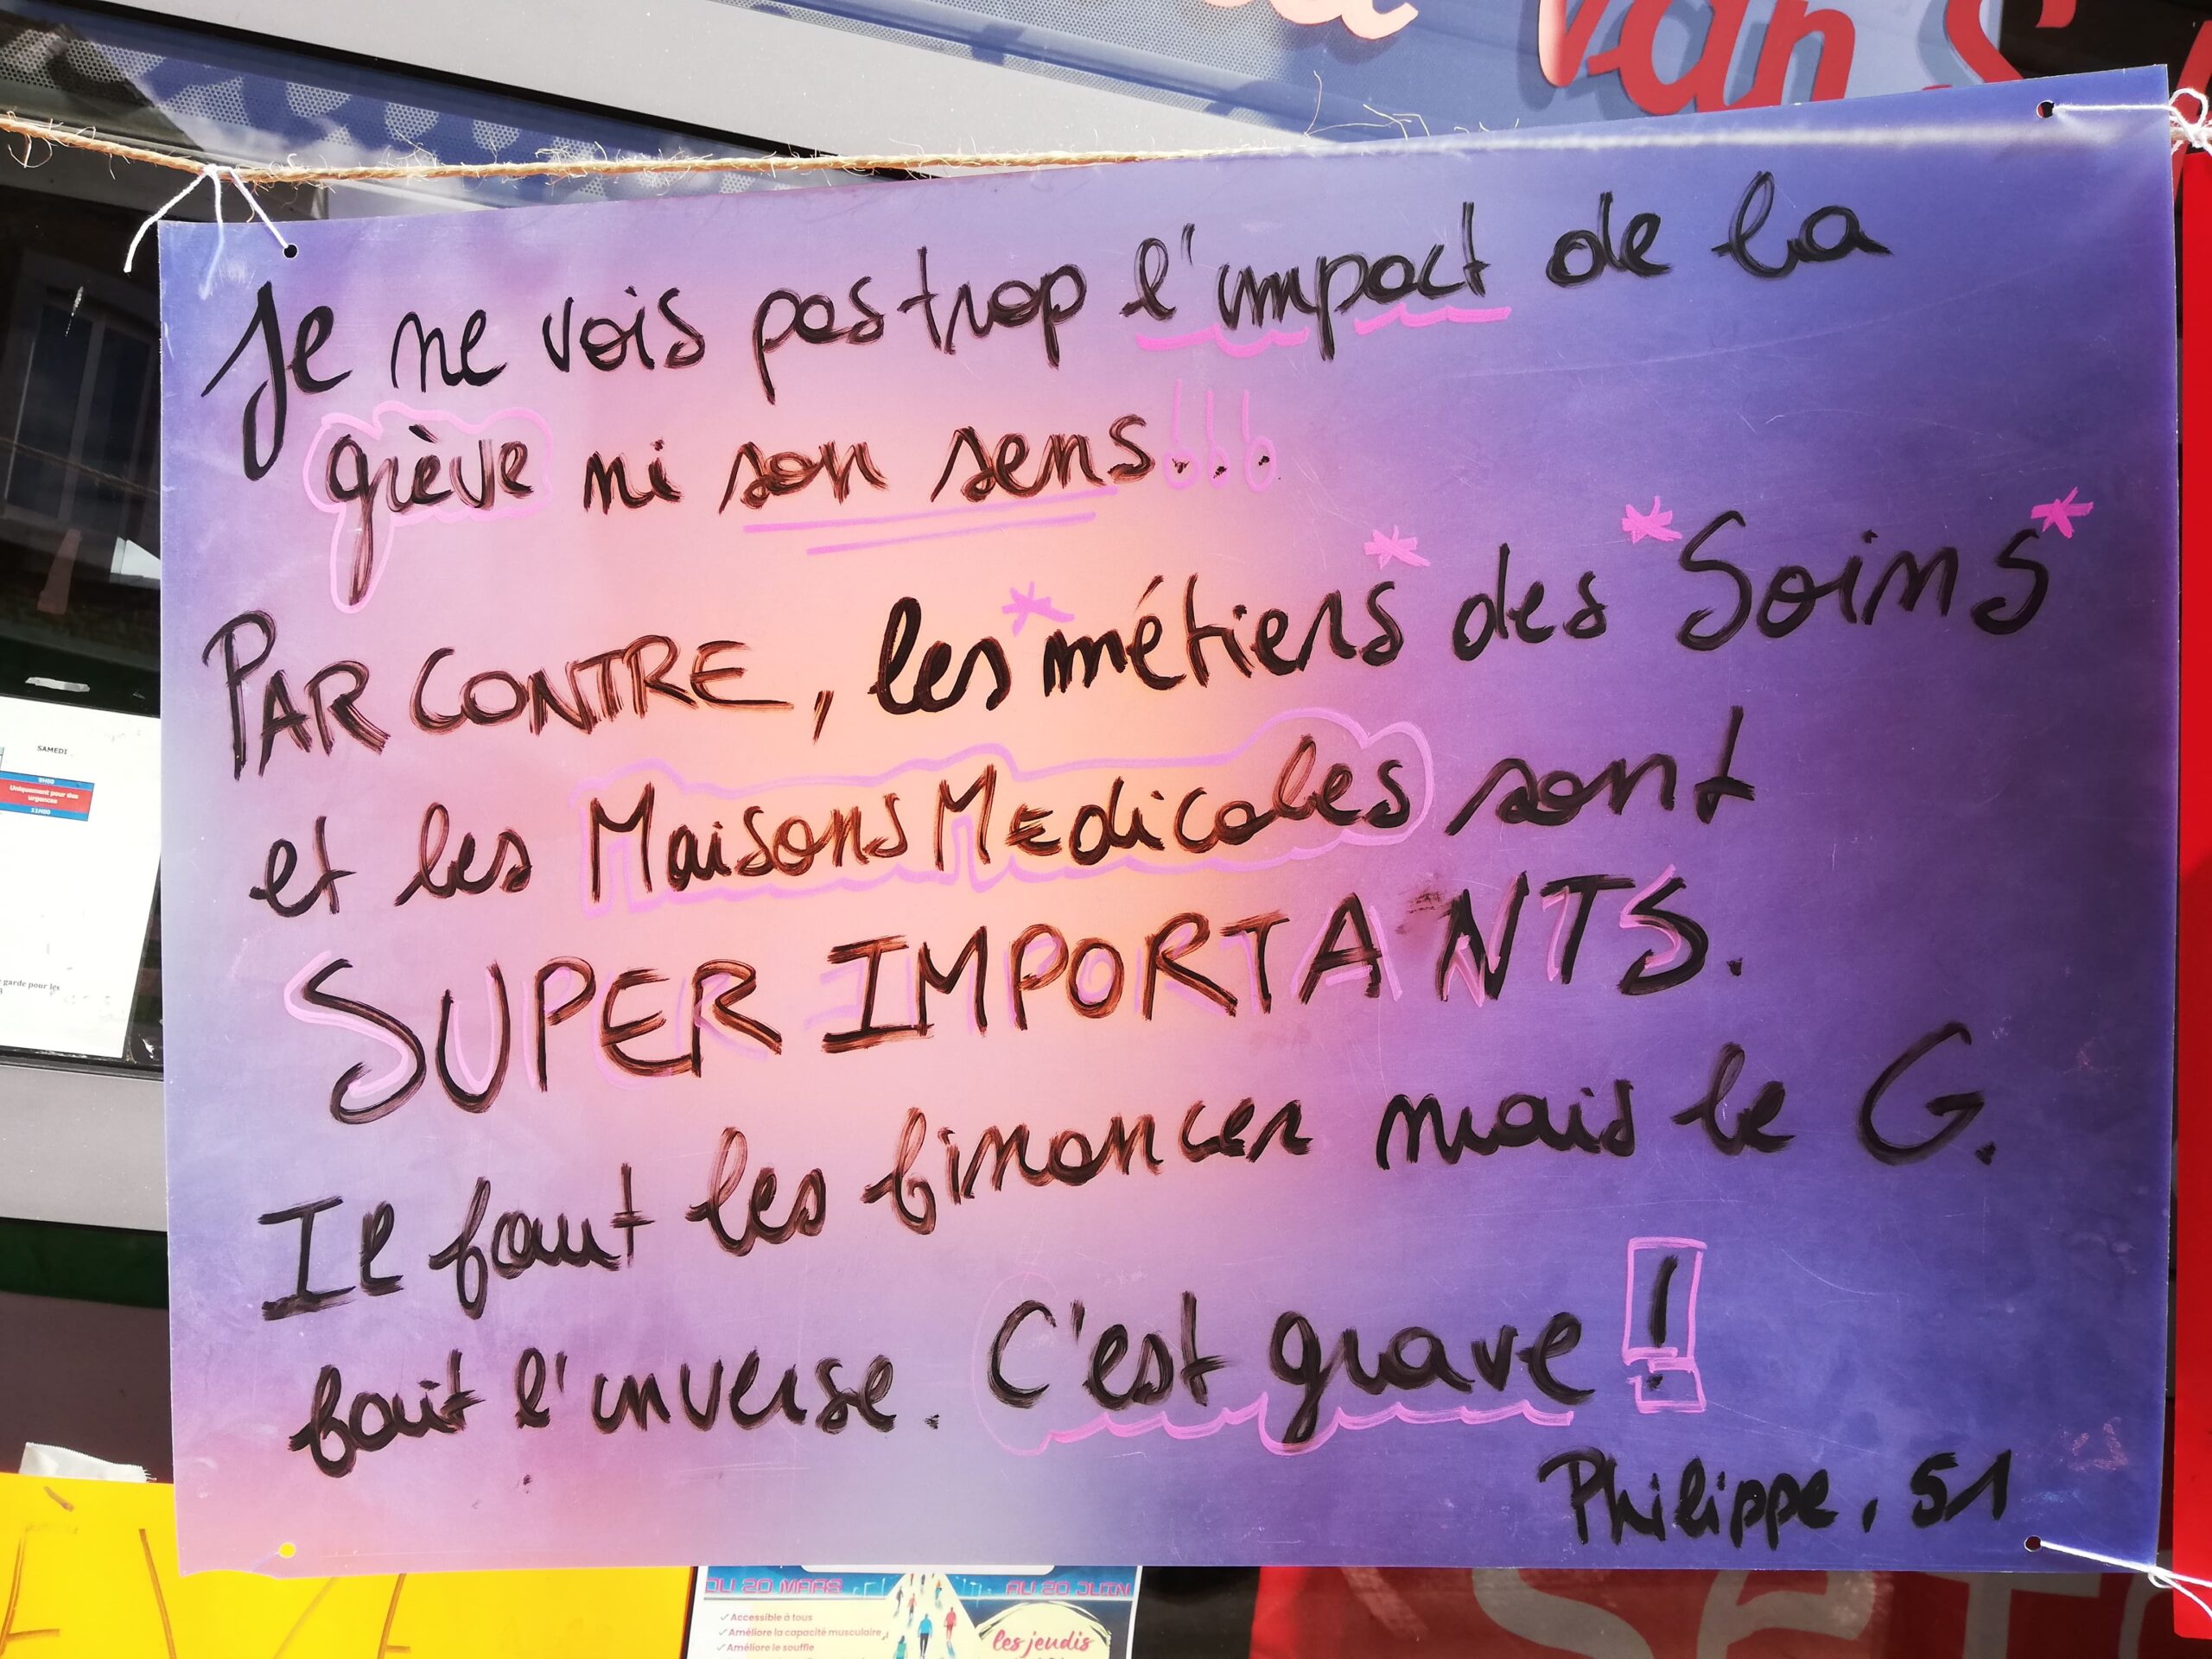 Van S
Je ne vois pas trop l'impact de la
grève ni son sens!!!
PAR CONTRE, les *métiers* des *Soins*
et les Maisons Medicales sont
SUPER IMPORTANTS.
Il faut les financer mais le G.
fait l'inverse. C'est grave !
Philippe, 51
SAMEDI
9H00
Uniquement pour des
urgences
11H00
garde pour les
DU 20 MARS AU 20 JUIN
✓ Accessible à tous
✓ Améliore la capacité musculaire
✓ Améliore le souffle
les jeudis